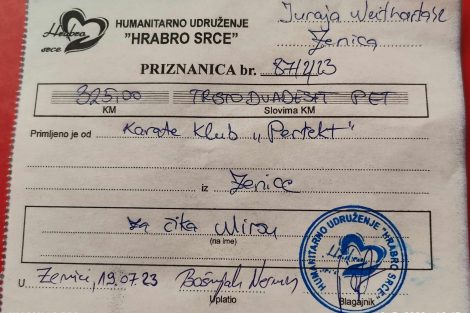 Hrabro srce
HUMANITARNO UDRUŽENJE
"HRABRO SRCE"
Juraja Neithartasa
Zenica
PRIZNANICA br. 87/2/23
325,00 TRISTO DVADESET PET
KM Slovima KM
Primljeno je od Karate Klub "Perfekt"
iz Zenice
za čika Miru
(na ime)
U Zenici, 19.07.23 Bošnjak
Uplatio Blagajnik
HUMANITARNO UDRUŽENJE "HRABRO SRCE"